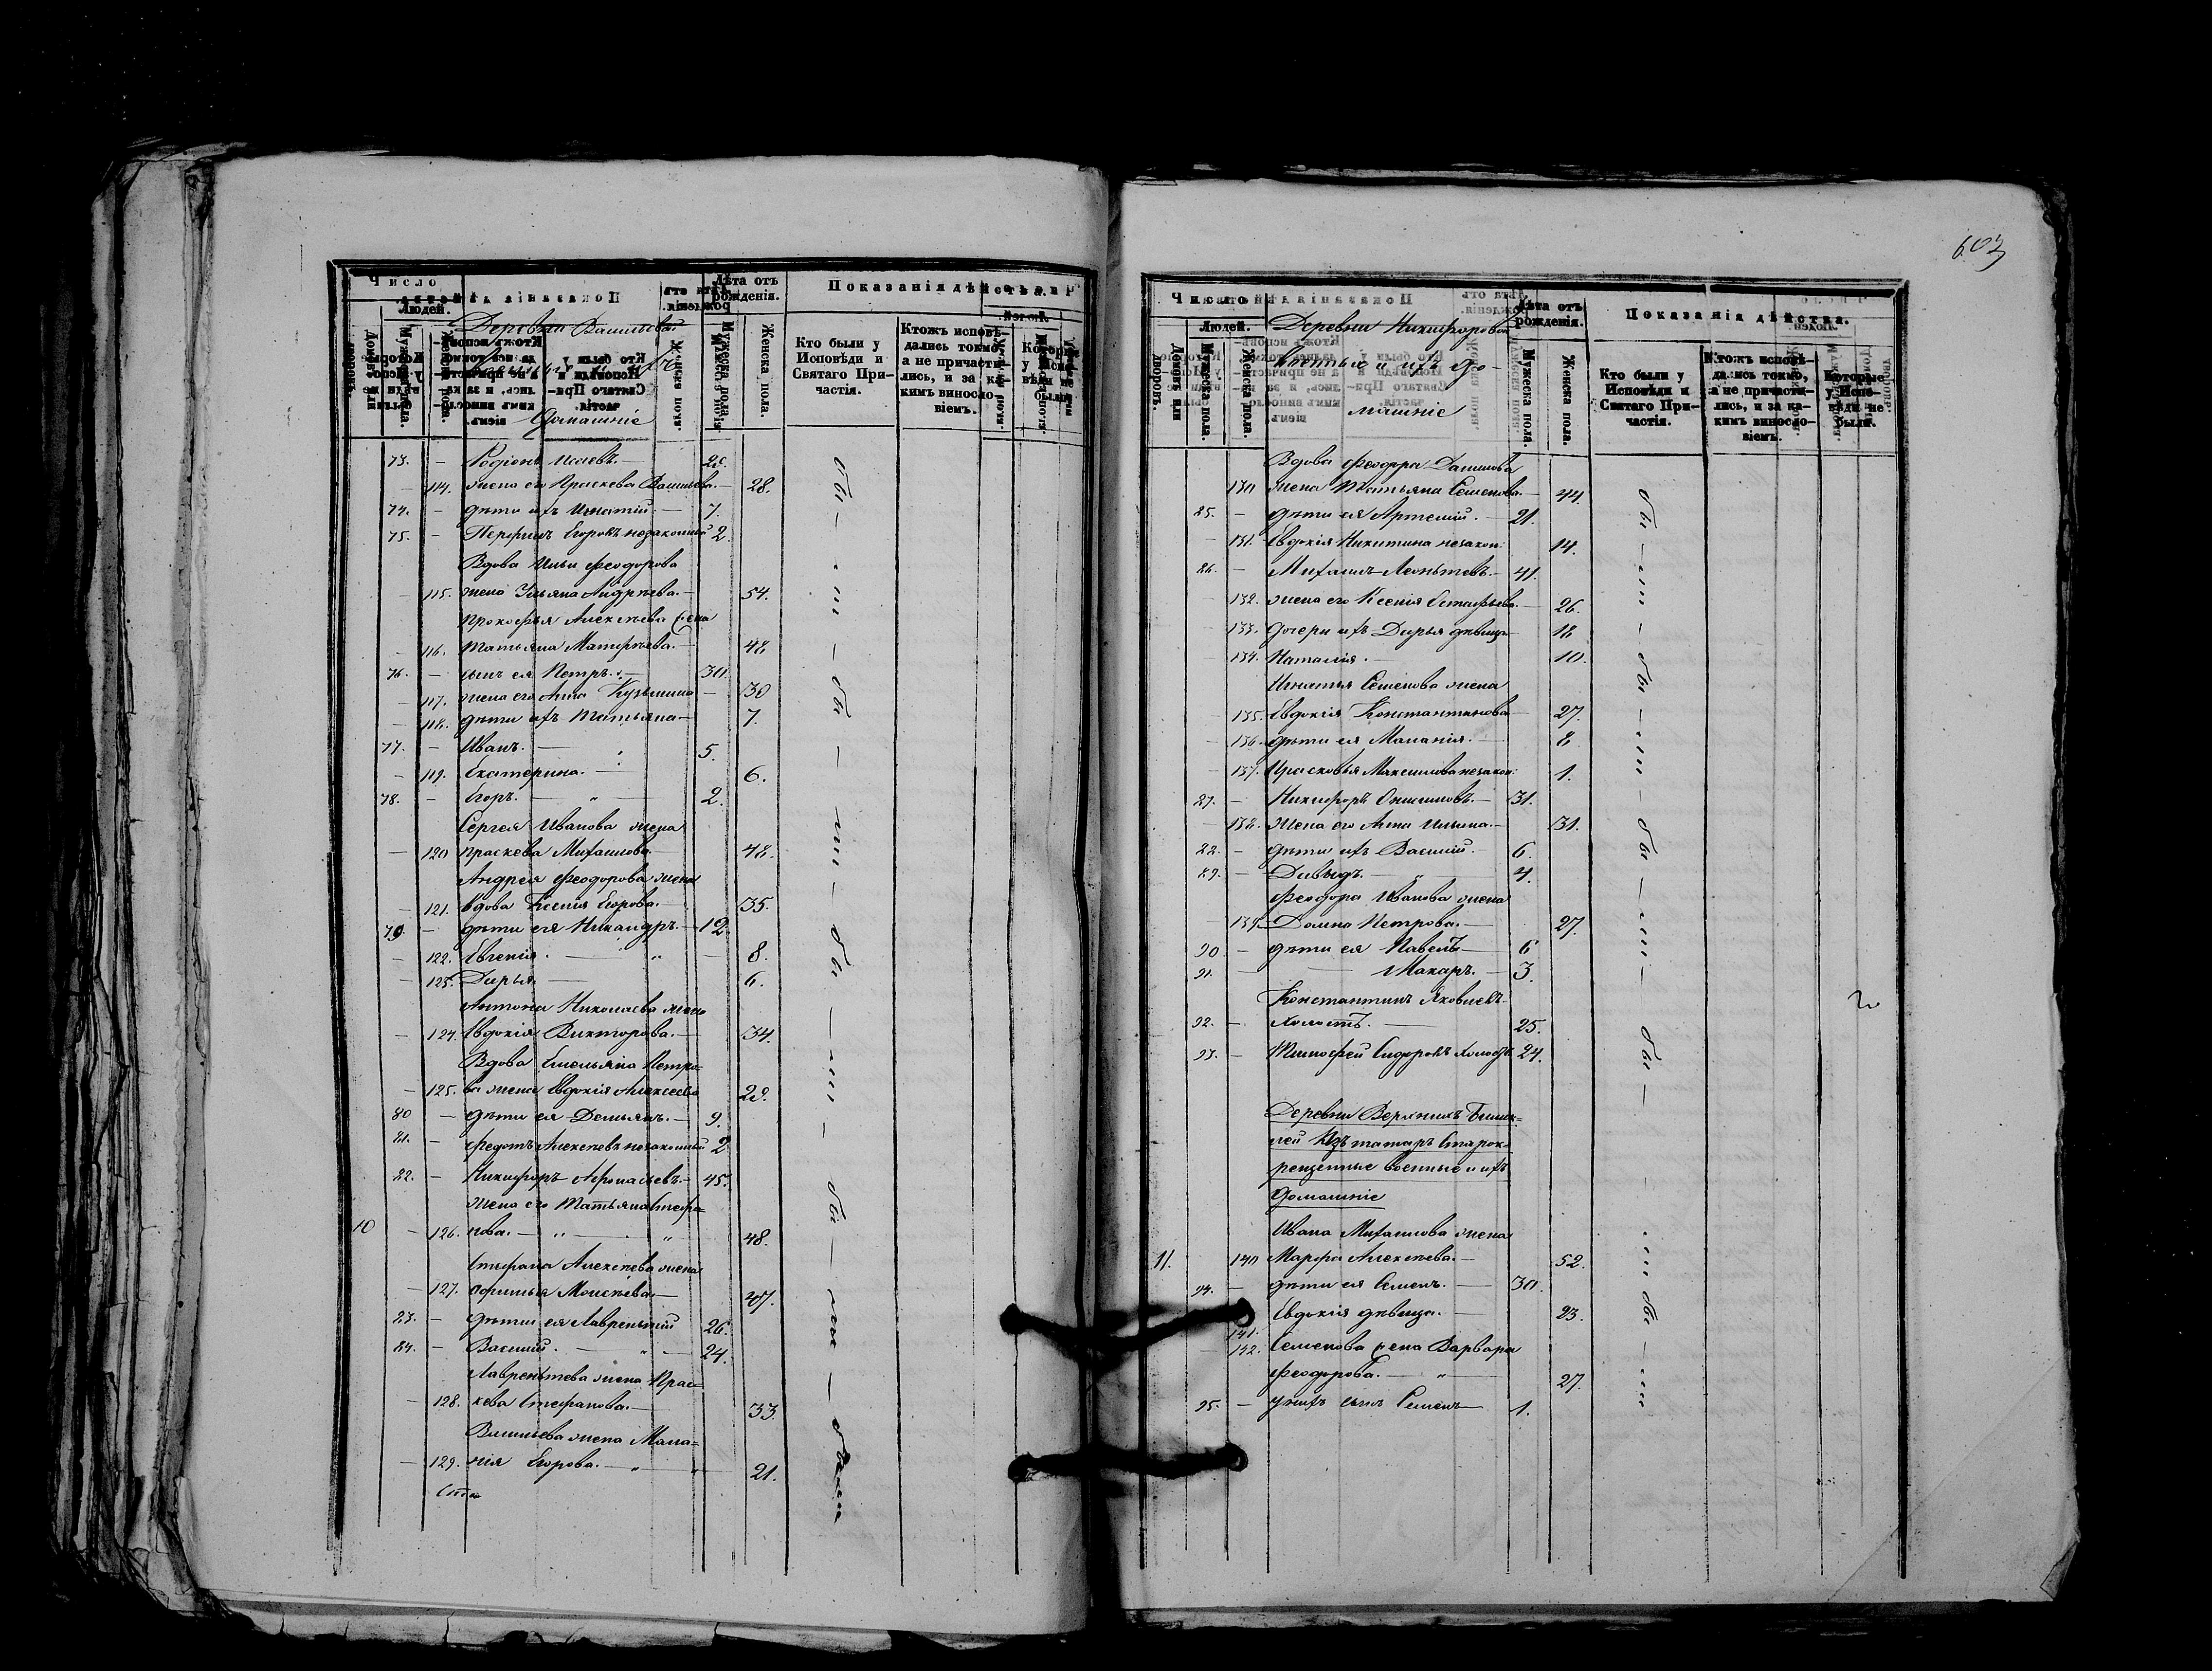 Число
Людей.
Дворовъ.
Мужеска пола.
Женска пола.
Деревни Васильевой
Домашніе
Лѣта отъ рожденія.
Мужеска пола.
Женска пола.
Показанія дѣйства.
Кто были у Исповѣди и Святаго Причастія.
Ктожъ исповѣдались токмо, а не причастились, и за какимъ винословіемъ.
Которые у Исповѣди не были.
73. — Родіонъ Исаевъ. —
— 114. жена его Праскева Васильева. — 28.
74. — дѣти ихъ Игнатій — 7.
75. — Перфилъ Егоровъ незаконный 2.
Вдова Ильи Феодорова
— 115. жена Ульяна Андрѣева. — 54.
Прокофья Алексѣева жена
— 116. Татьяна Матфѣева. — 48.
76. — сынъ ея Петръ. — 30.
— 117. жена его Анна Кузьмина — 30
— 118. дѣти ихъ Татьяна — 7.
77. — Иванъ. — 5.
— 119. Екатерина. — 6.
78. — Егоръ. — 2.
Сергея Иванова жена
— 120 Праскева Михаилова. — 48.
Андрея Феодорова жена
— 121. вдова Ксенія Егорова. — 35.
79 — дѣти ея Никандръ. — 12.
— 122. Евгенія. — 8.
— 123. Дарья. — 6.
Антона Николаева жена
— 124. Евдокія Викторова. — 34.
Вдова Емельяна Петро-
— 125. ва жена Евдокія Алексеева
80 — дѣти ея Демьянъ. — 9.
81. — Федотъ Алексѣевъ незаконный 2
82. — Никифоръ Афонасьевъ. — 45.
жена его Татьяна Стефа-
10 — 126. нова. — 48.
Стефана Алексѣева жена
— 127. Офимья Моисѣева. — 47.
83. — дѣти ея Лаврентій 26.
84. — Василій. — 24.
Лаврентьева жена Прас-
— 128. кева Стефанова. — 33.
Васильева жена Мала-
— 129. нія Егорова. — 21.
бы — ли — бы — ли — бы — ли — бы — ли — были
603
Число
Людей.
Дворовъ.
Мужеска пола.
Женска пола.
Деревни Никифоровой
военные и ихъ до-
машніе
Лѣта отъ рожденія.
Мужеска пола.
Женска пола.
Показанія дѣйства.
Кто были у Исповѣди и Святаго Причастія.
Ктожъ исповѣдались токмо, а не причастились, и за какимъ винословіемъ.
Которые у Исповѣди не были.
Вдова Феодора Данилова
130 жена Татьяна Семенова. — 44.
85. — дѣти ея Артемій. — 21.
— 131. Евдокія Никитина незакон: 14.
86. — Михаилъ Леонтьевъ. — 41.
— 132. жена его Ксенія Остафьева. — 26.
— 133. дочери ихъ Дарья дѣвица — 18
— 134. Наталія. — 10.
Игнатья Семенова жена
— 135. Евдокія Константинова — 27.
— 136. дѣти ея Маланія. — 8
— 137. Прасковья Максимова незакон: 1.
87. — Никифоръ Онисимовъ. — 31.
— 138. Жена его Анна Ильина. — 31.
88. — дѣти ихъ Василій. — 6.
89. — Давыдъ. — 4.
Феодора Иванова жена
— 139. Домна Петрова. — 27.
90 — дѣти ея Павелъ — 6
91. — Макаръ. — 3.
Константинъ Яковлевъ
92. — холостъ. — 25.
93. — Тимофей Сидоровъ холостъ 24.
Деревни Верхнихъ
изъ татаръ старок-
рещенные военные и ихъ
домашніе
Ивана Михаилова жена
11. 140 Марфа Алексѣева. — 52.
94. — дѣти ея Семенъ. — 30.
141. Евдокія дѣвица. — 23.
— 142. Семенова жена Варвара
Феодорова. — 27.
95. — у нихъ сынъ Семенъ — 1.
бы — ли — бы — ли — бы — ли — бы — ли бы — ли